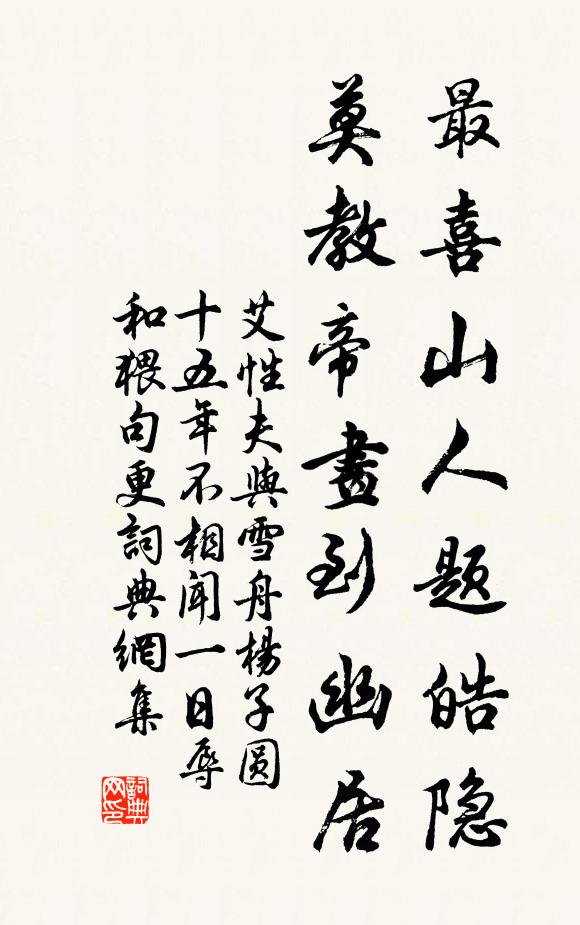 最喜山人题皓隐
莫教帝畫到幽居
艾性夫與雪舟楊子圓
十五年不相聞一日辱
和猥句更詞典網集
詞典网印